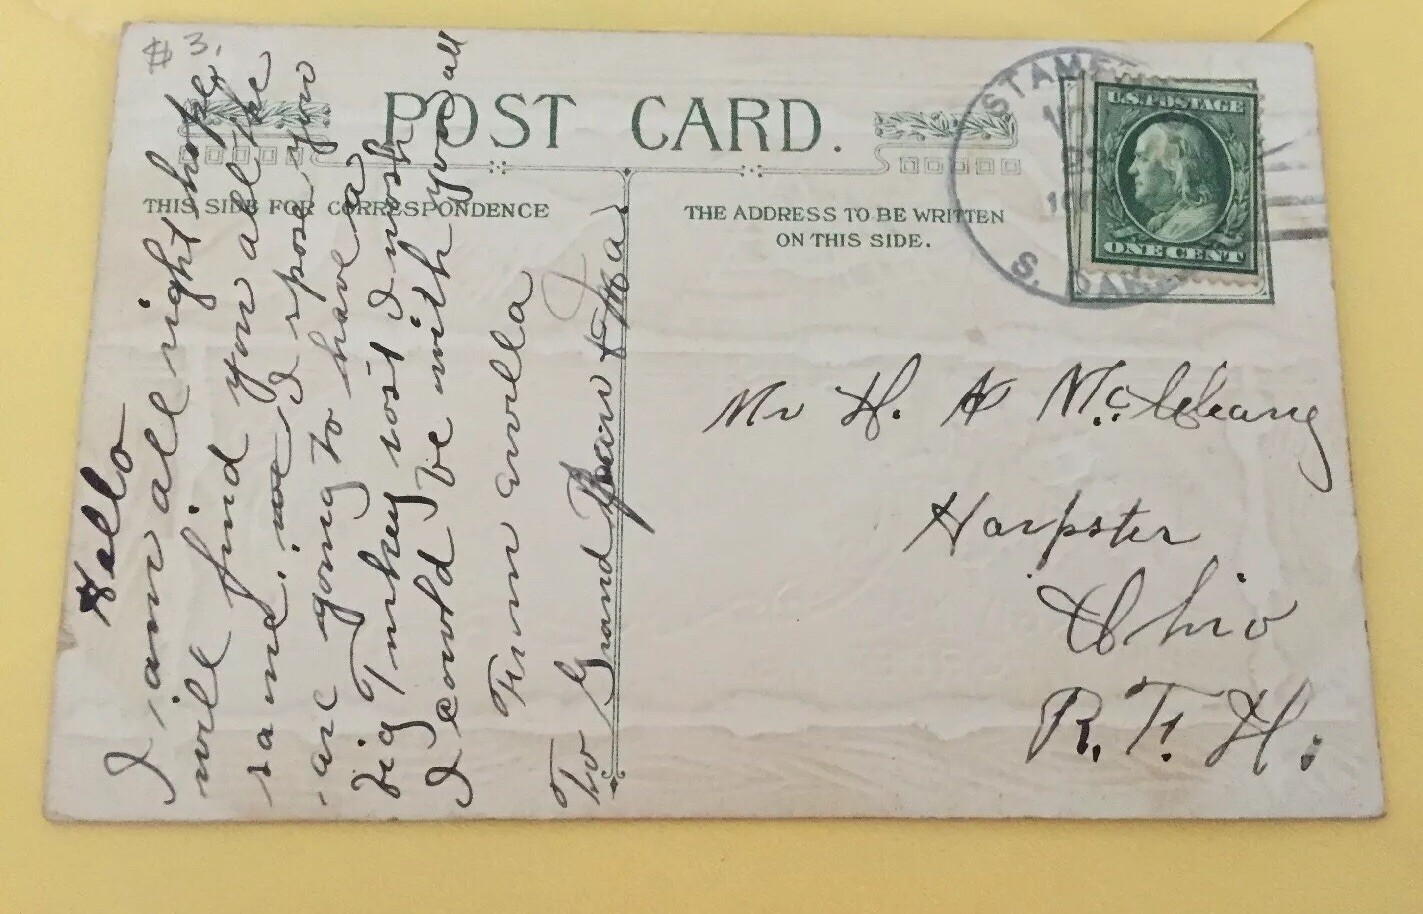 $ 3.
POST CARD.
THIS SIDE FOR CORRESPONDENCE
THE ADDRESS TO BE WRITTEN
ON THIS SIDE.
U.S. POSTAGE
ONE CENT
S. DAK
Hello
I am all right hope
will find you all the
same. I spose you
are going to have a
big Turkey rost I wosh
I could be with you all
From
To Grand Paw & Ma
Mr H. A Mc Cleary
Harpster
Ohio